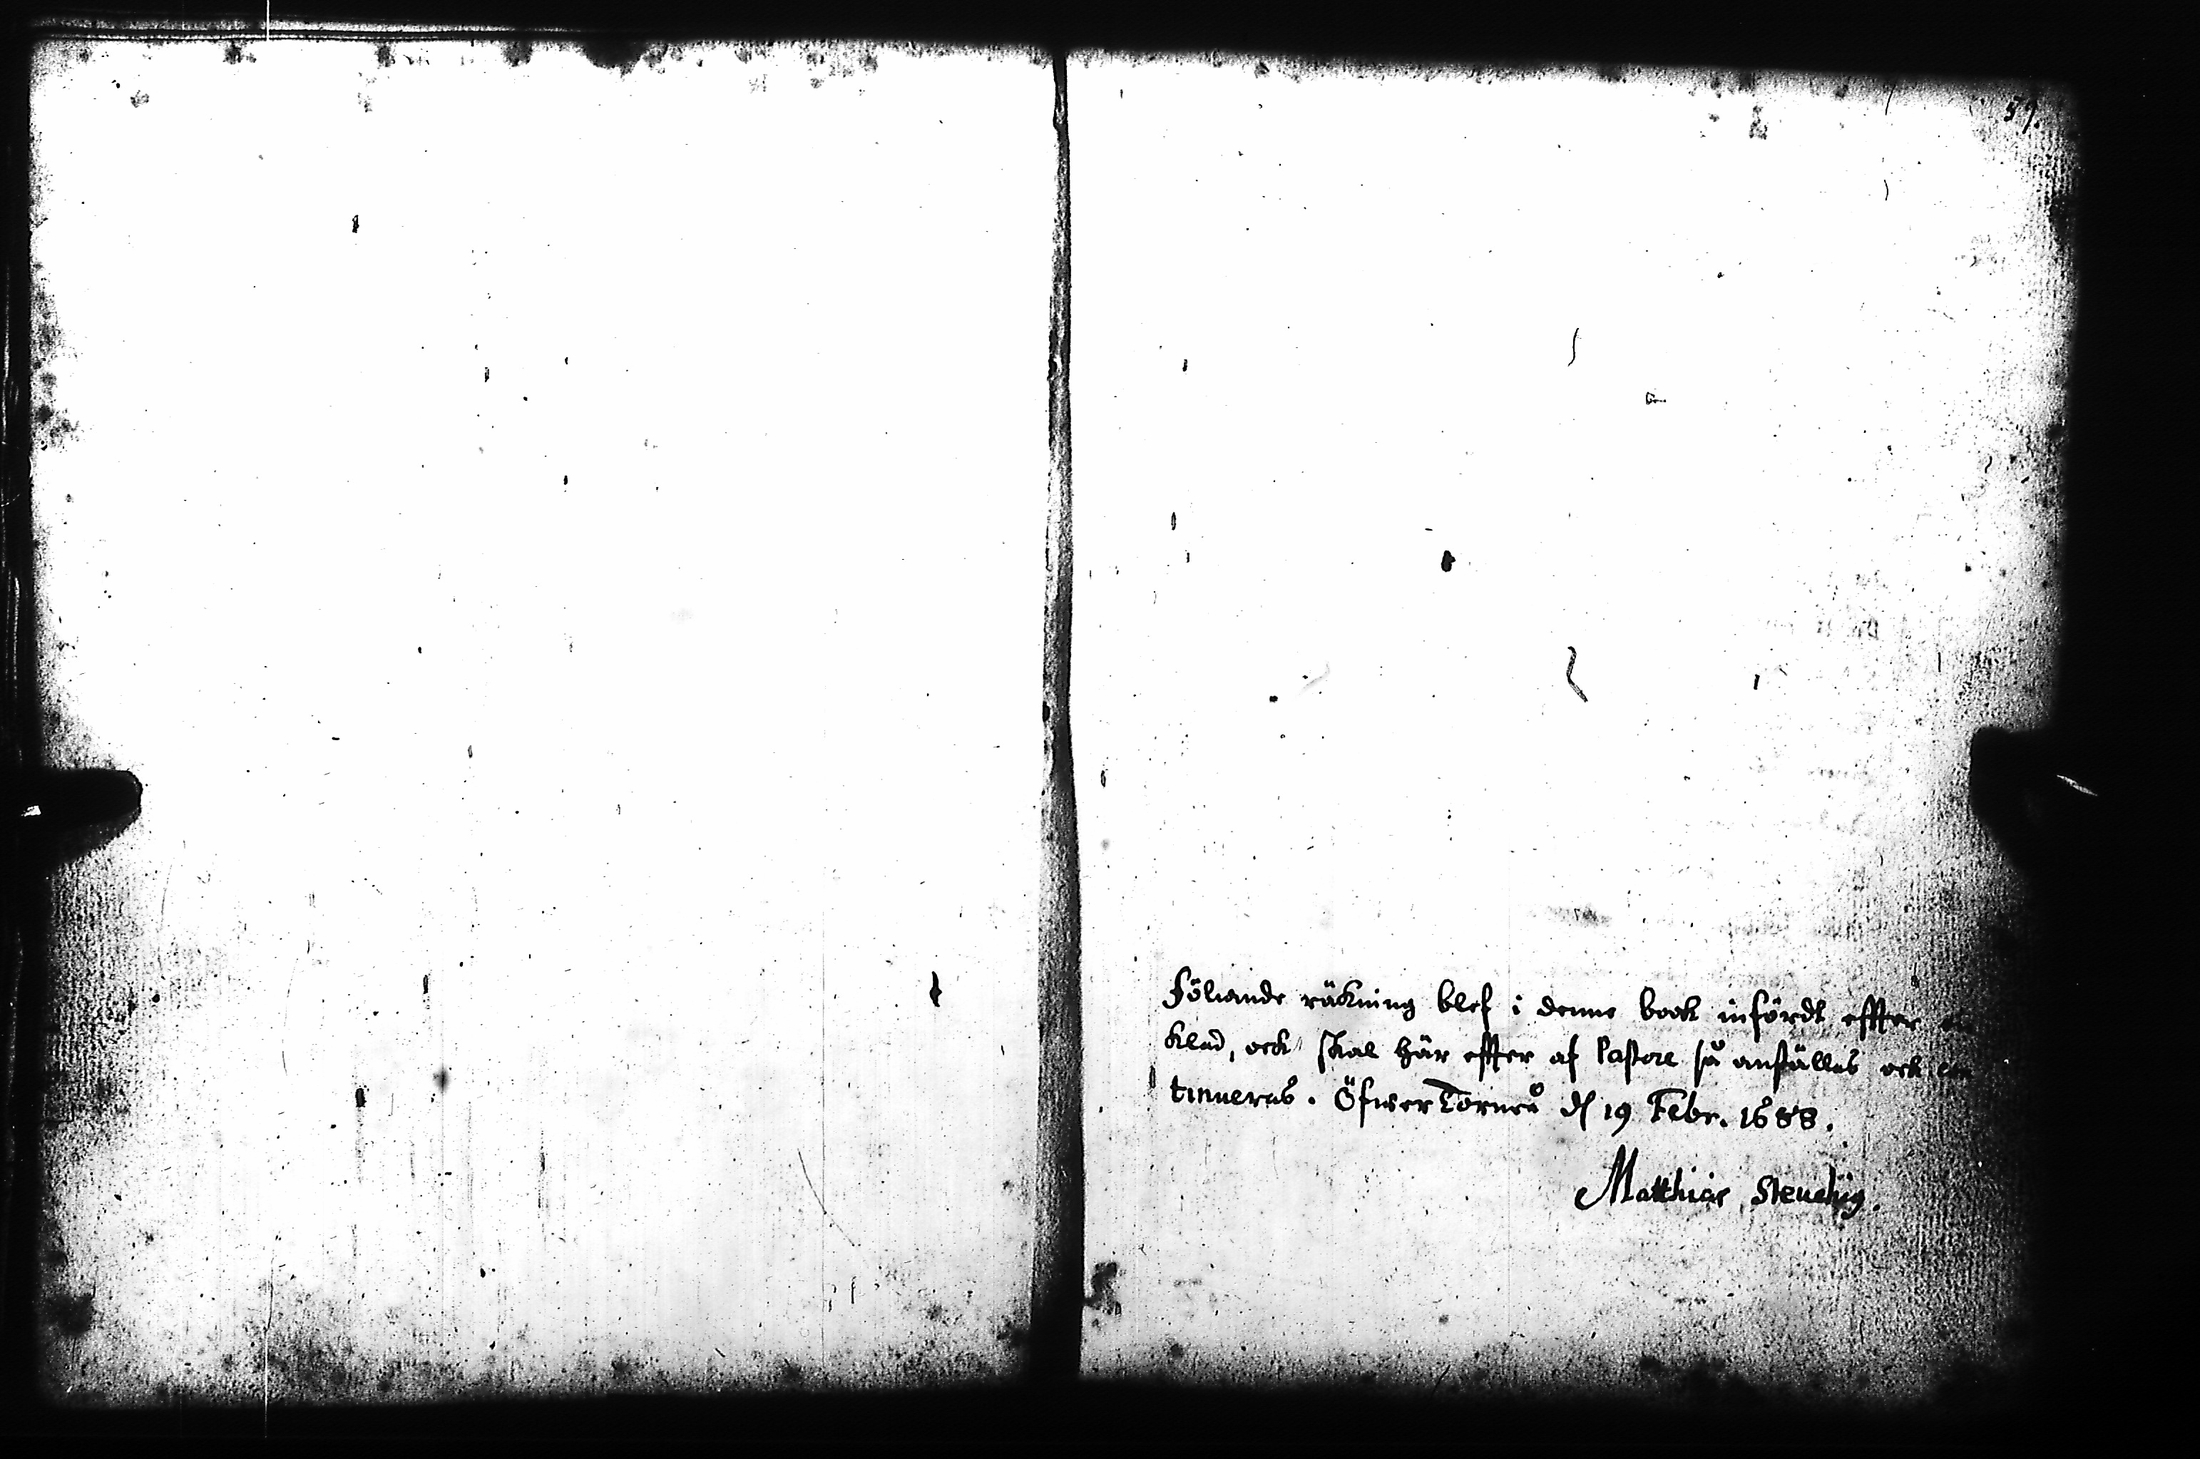 57.
Föliande räckning blef i denne book infördt effter
klad, ock skal här effter af Pastore så anställas ock con
tinueras. ÖfwerTorneå d 19 Febr. 1688.
Matthias Steuchig.